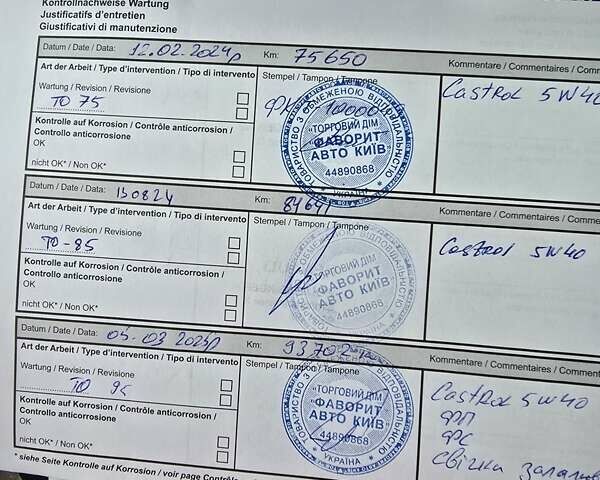 Kontrollnachweise Wartung
Justificatifs d'entretien
Giustificativi di manutenzione
Datum / Date / Data: 12.02.2024р Km: 75650
Kommentare / Commentaires / Comm
Art der Arbeit / Type d'intervention / Tipo di intervento
Wartung / Revision / Revisione
ТО 75
Kontrolle auf Korrosion / Contrôle anticorrosion /
Controllo anticorrosione
OK*
nicht OK* / Non OK*
Stempel / Tampon / Tampone
10000
ТОВАРИСТВО З ОБМЕЖЕНОЮ ВІДПОВІДАЛЬНІСТЮ
«ТОРГОВИЙ ДІМ
ФАВОРИТ
АВТО КИЇВ"
44890868
УКРАЇНА
Castrol 5W40
Datum / Date / Data: 130824 Km:
Kommentare / Commentaires / Comm
Art der Arbeit / Type d'intervention / Tipo di intervento
Wartung / Revision / Revisione
ТО-85
Kontrolle auf Korrosion / Contrôle anticorrosion /
Controllo anticorrosione
OK*
nicht OK* / Non OK*
Stempel / Tampon / Tampone
ТОВАРИСТВО З ОБМЕЖЕНОЮ ВІДПОВІДАЛЬНІСТЮ
«ТОРГОВИЙ ДІМ
ФАВОРИТ
АВТО КИЇВ"
44890868
Castrol 5W40
Datum / Date / Data: 05.03 2025р Km: 93702
Kommentare / Commentaires / Comm
Art der Arbeit / Type d'intervention / Tipo di intervento
Wartung / Revision / Revisione
ТО 95
Kontrolle auf Korrosion / Contrôle anticorrosion /
Controllo anticorrosione
OK*
nicht OK* / Non OK*
Stempel / Tampon / Tampone
«ТОРГОВИЙ ДІМ
ФАВОРИТ
АВТО КИЇВ"
44890868
УКРАЇНА
Castrol 5W40
ФП
ФС
свічки
* siehe Seite Kontrolle auf Korrosion / voir page Contrôle